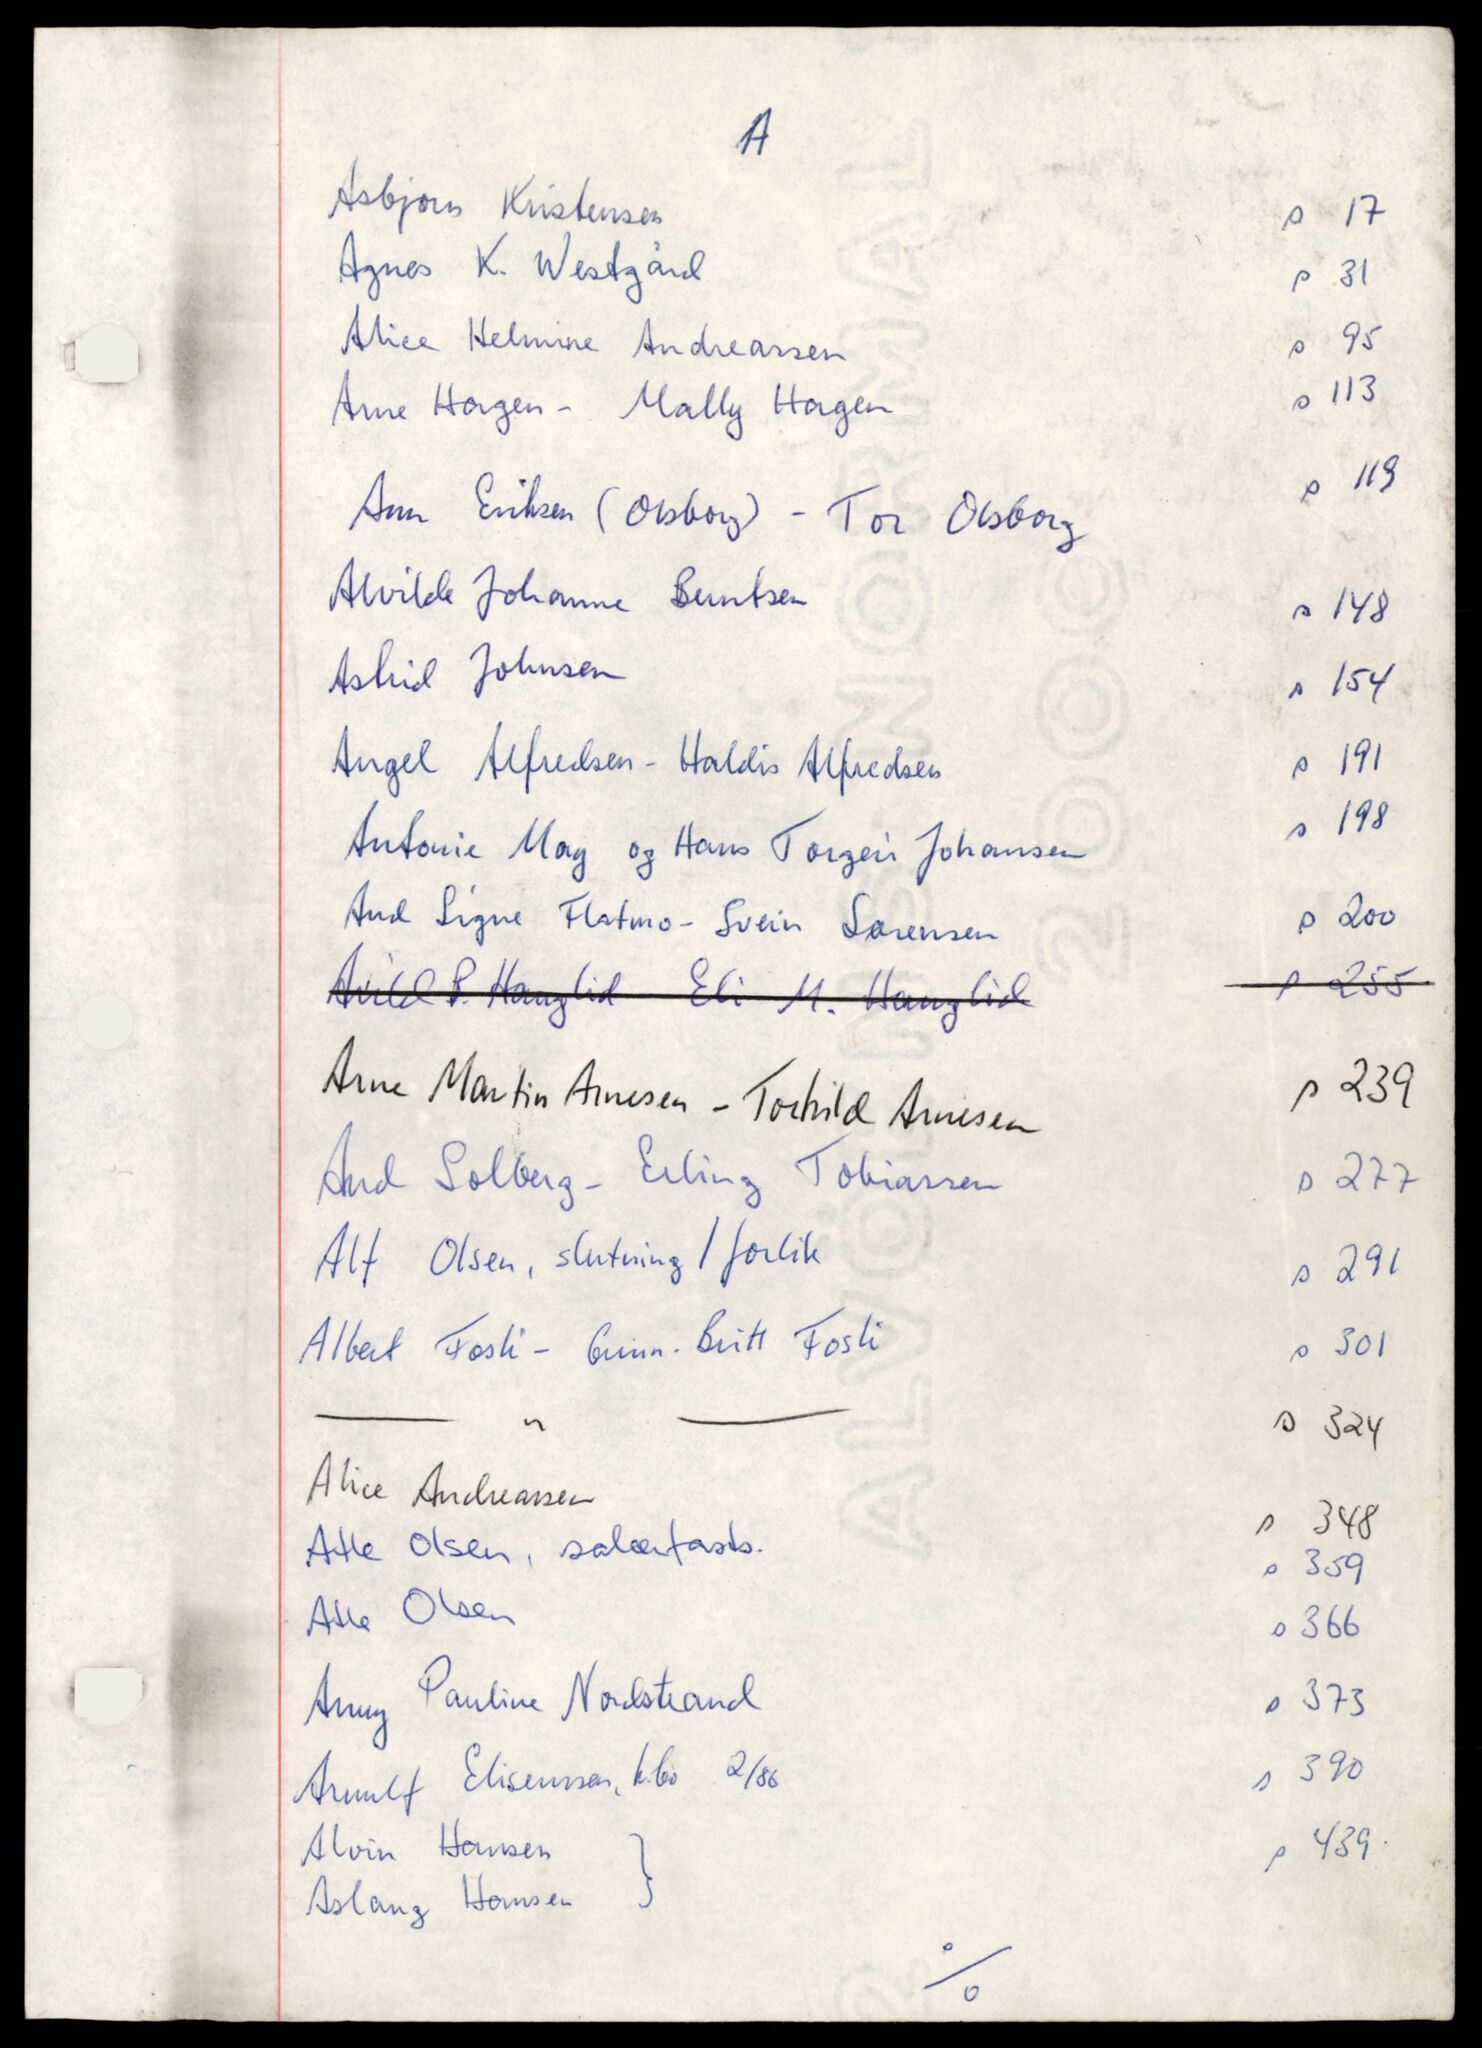 A
Asbjørn Kristensen s 17
Agnes K. Westgård s 31
Alice Helmine Andreassen s 95
Arne Hagen - Mally Hagen s 113
Ann Eriksen (Olsborg) - Tor Olsborg s 119
Alvilde Johanne Berntsen s 148
Astrid Johnsen s 154
Angel Alfredsen - Haldis Alfredsen s 191
Antonie Mag og Hans Torgeir Johansen s 198
Aud Signe Flatmo - Svein Sørensen s 200
Arild P. Hauglid Eli M. Hauglid s 255
Arne Martin Arnesen - Torhild Arnesen s 239
Aud Solberg - Erling Tobiassen s 277
Alf Olsen, slutning / forlik s 291
Albert Fosli - Gunn-Britt Fosli s 301
— " — s 324
Alice Andreassen s 348
Atle Olsen, salærfasts. s 359
Atle Olsen s 366
Anny Pauline Nordstrand s 373
Arnulf Elisenssen, 2/86 s 390
Alvin Hansen } s 439
Aslaug Hansen
%
ALVØENS NORMAL
2000